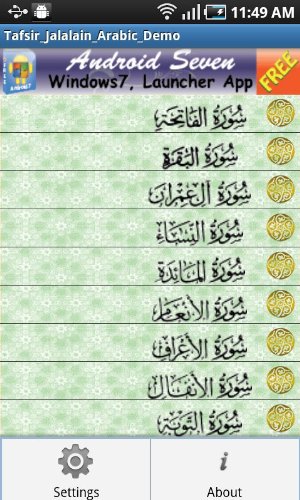 11:49 AM
Tafsir_Jalalain_Arabic_Demo
Android Seven
Windows7, Launcher App
FREE
سُورَةُ الفَاتِحَةِ
سُورَةُ البَقَرَةِ
سُورَةُ آلِ عِمْرَان
سُورَةُ النِّسَاءِ
سُورَةُ المَائِدَةِ
سُورَةُ الأَنْعَامِ
سُورَةُ الأَعْرَافِ
سُورَةُ الأَنْفَالِ
سُورَةُ التَّوْبَةِ
Settings
About